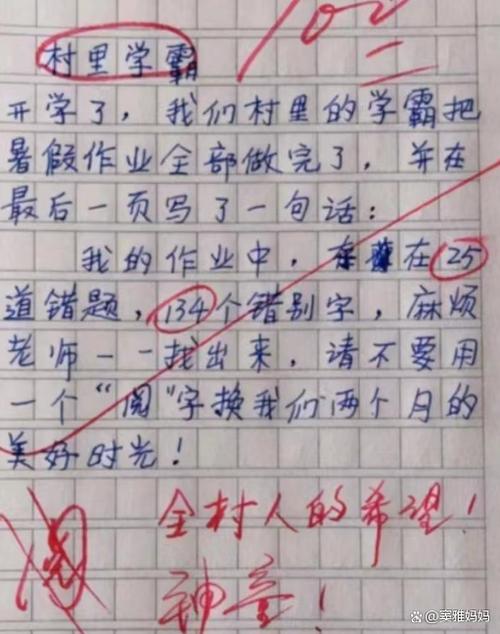 100
村里学霸
开学了，我们村里的学霸把
暑假作业全部做完了，并在
最后一页写了一句话：
我的作业中，在25
道错题，134个错别字，麻烦
老师一一找出来，请不要用
一个“阅”字换我们两个月的
美好时光！
全村人的希望！
阅
神童！
@窦雅妈妈